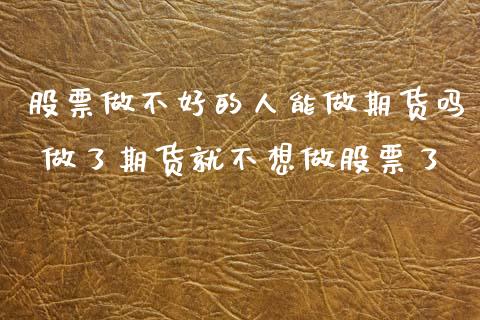 股票做不好的人能做期货吗
做了期货就不想做股票了